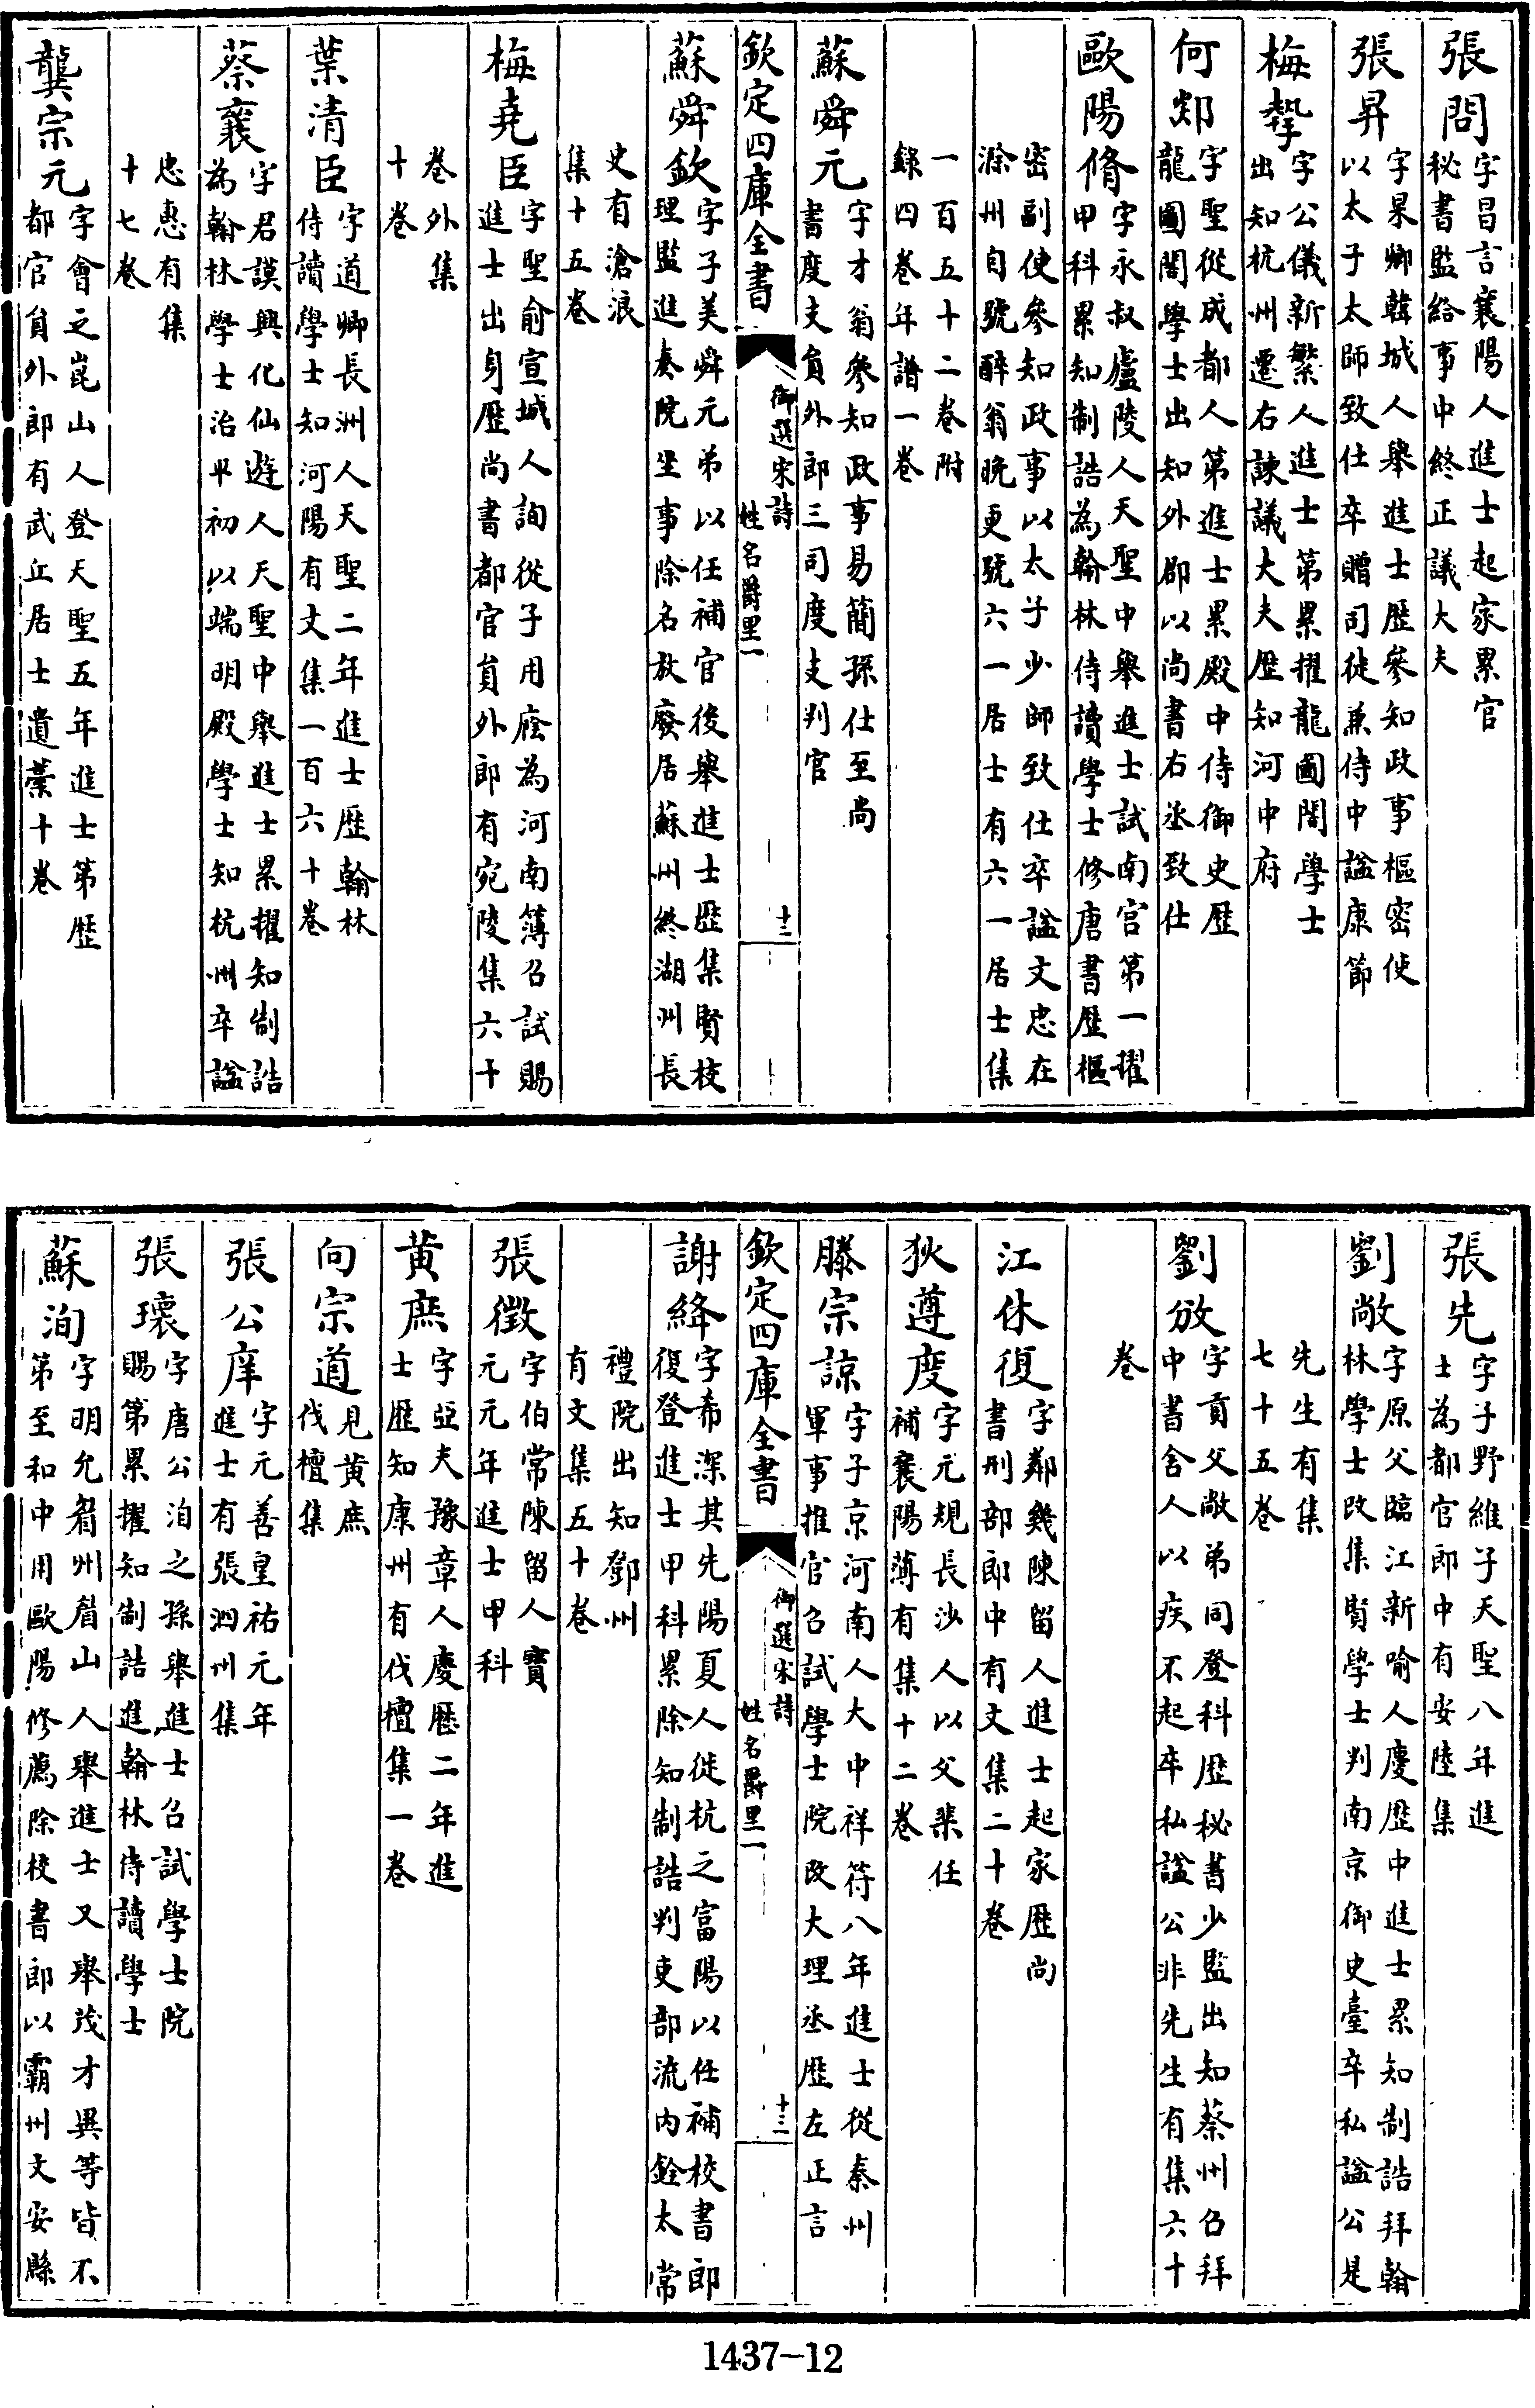 張問字昌言襄陽人進士起家累官
秘書監給事中終正議大夫
張昇字杲卿韓城人舉進士歷參知政事樞密使
以太子太師致仕卒贈司徒兼侍中諡康節
梅摯字公儀新繁人進士第累擢龍圖閣學士
出知杭州遷右諫議大夫歷知河中府
何郯字聖從成都人第進士累殿中侍御史歷
龍圖閣學士出知外郡以尚書右丞致仕
歐陽脩字永叔廬陵人天聖中舉進士試南宮第一擢
甲科累知制誥為翰林侍讀學士修唐書歷樞
密副使參知政事以太子少師致仕卒諡文忠在
滁州自號醉翁晚更號六一居士有六一居士集
一百五十二卷附
錄四卷年譜一卷
蘇舜元字才翁參知政事易簡孫仕至尚
書度支員外郎三司度支判官
欽定四庫全書
御選宋詩
姓名爵里一
十二
蘇舜欽字子美舜元弟以任補官後舉進士歷集賢校
理監進奏院坐事除名放廢居蘇州終湖州長
史有滄浪
集十五卷
梅堯臣字聖俞宣城人詢從子用廕為河南簿召試賜
進士出身歷尚書都官員外郎有宛陵集六十
卷外集
十卷
葉清臣字道卿長洲人天聖二年進士歷翰林
侍讀學士知河陽有文集一百六十卷
蔡襄字君謨興化仙遊人天聖中舉進士累擢知制誥
為翰林學士治平初以端明殿學士知杭州卒諡
忠惠有集
十七卷
龔宗元字會之崑山人登天聖五年進士第歷
都官員外郎有武丘居士遺藁十卷
張先字子野維子天聖八年進
士為都官郎中有安陸集
劉敞字原父臨江新喻人慶歷中進士累知制誥拜翰
林學士改集賢學士判南京御史臺卒私諡公是
先生有集
七十五卷
劉攽字貢父敞弟同登科歷秘書少監出知蔡州召拜
中書舍人以疾不起卒私諡公非先生有集六十
卷
江休復字鄰幾陳留人進士起家歷尚
書刑部郎中有文集二十卷
狄遵度字元規長沙人以父棐任
補襄陽薄有集十二卷
滕宗諒字子京河南人大中祥符八年進士從秦州
軍事推官召試學士院改大理丞歷左正言
欽定四庫全書
御選宋詩
姓名爵里一
十三
謝絳字希深其先陽夏人徙杭之富陽以任補校書郎
復登進士甲科累除知制誥判吏部流內銓太常
禮院出知鄧州
有文集五十卷
張徵字伯常陳留人寶
元元年進士甲科
黃庶字亞夫豫章人慶歷二年進
士歷知康州有伐檀集一卷
向宗道見黃庶
伐檀集
張公庠字元善皇祐元年
進士有張泗州集
張瓌字唐公洎之孫舉進士召試學士院
賜第累擢知制誥進翰林侍讀學士
蘇洵字明允眉州眉山人舉進士又舉茂才異等皆不
第至和中用歐陽修薦除校書郎以霸州文安縣
1437-12